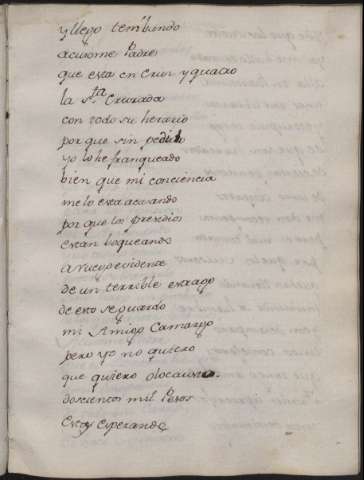 y llego temblando
acusome Padre
que esta en Cruz y quadro
la S.ta Cruzada
con todo su herario
por que sin pedirlo
yo lo he franqueado
bien que mi conciencia
me lo esta acusando
por que los presidios
estan boqueando
a riesgo evidente
de un terrible estrago
de esto se quardo
mi Amigo Camargo
pero yo no quiero
que quiero olocausto.
doscientos mil Pesos
Estoy esperando